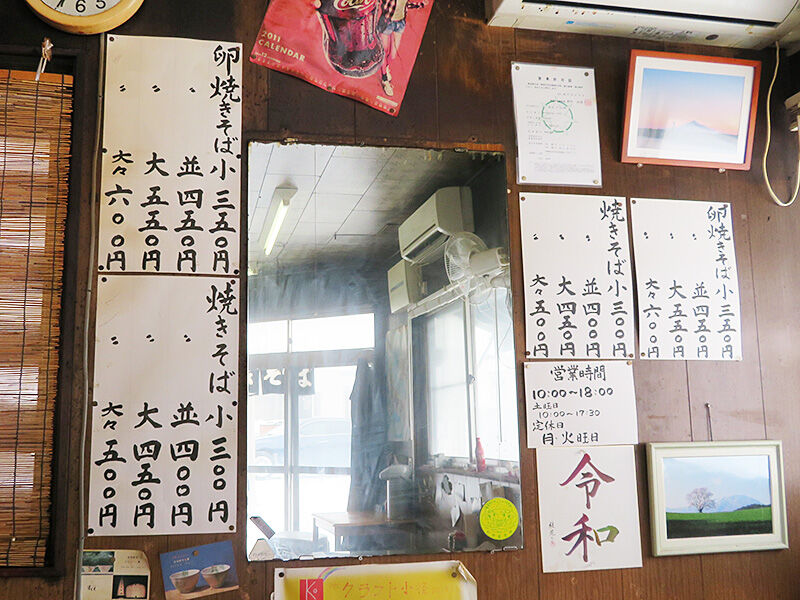 卵焼きそば小 三五〇円
〃 並 四五〇円
〃 大 五五〇円
〃 大々 六〇〇円
焼きそば小 三〇〇円
〃 並 四〇〇円
〃 大 四五〇円
〃 大々 五〇〇円
2011
CALENDAR
焼きそば小 三〇〇円
〃 並 四〇〇円
〃 大 四五〇円
〃 大々 五〇〇円
卵焼きそば小 三五〇円
〃 並 四五〇円
〃 大 五五〇円
〃 大々 六〇〇円
営業時間
10:00〜18:00
土曜日
10:00〜17:30
定休日
月・火曜日
令和